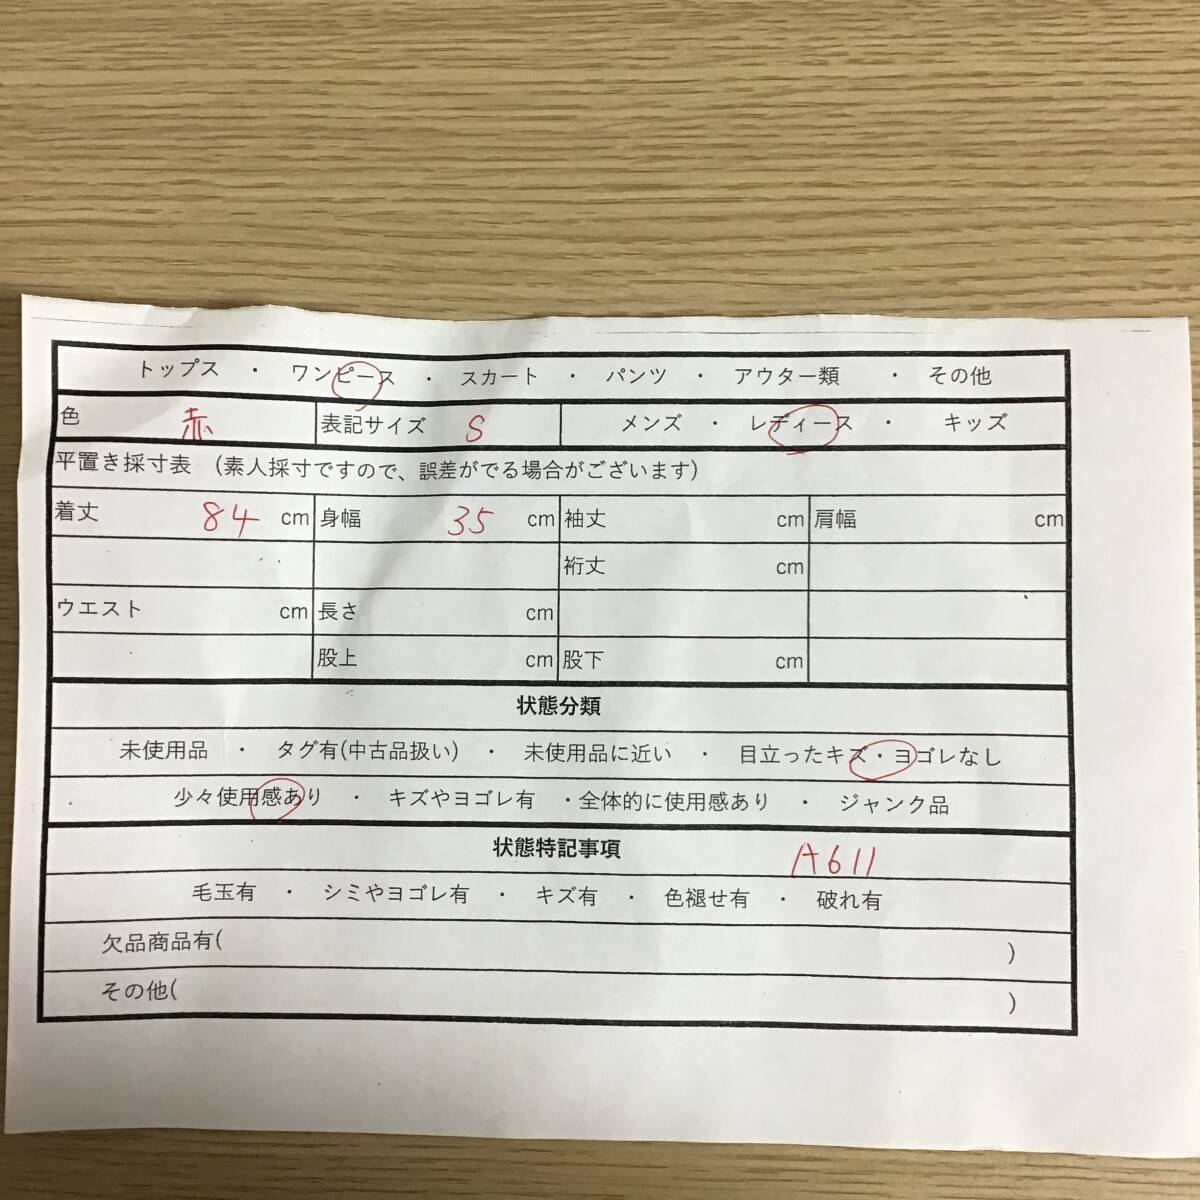 トップス ・ ワンピース ・ スカート ・ パンツ ・ アウター類 ・ その他
色 赤 表記サイズ S メンズ ・ レディース ・ キッズ
平置き採寸表 (素人採寸ですので、誤差がでる場合がございます)
着丈 84 cm 身幅 35 cm 袖丈 cm 肩幅 cm
裄丈 cm
ウエスト cm 長さ cm
股上 cm 股下 cm
状態分類
未使用品 ・ タグ有(中古品扱い) ・ 未使用品に近い ・ 目立ったキズ・ヨゴレなし
少々使用感あり ・ キズやヨゴレ有 ・全体的に使用感あり ・ ジャンク品
状態特記事項 A611
毛玉有 ・ シミやヨゴレ有 ・ キズ有 ・ 色褪せ有 ・ 破れ有
欠品商品有( )
その他( )